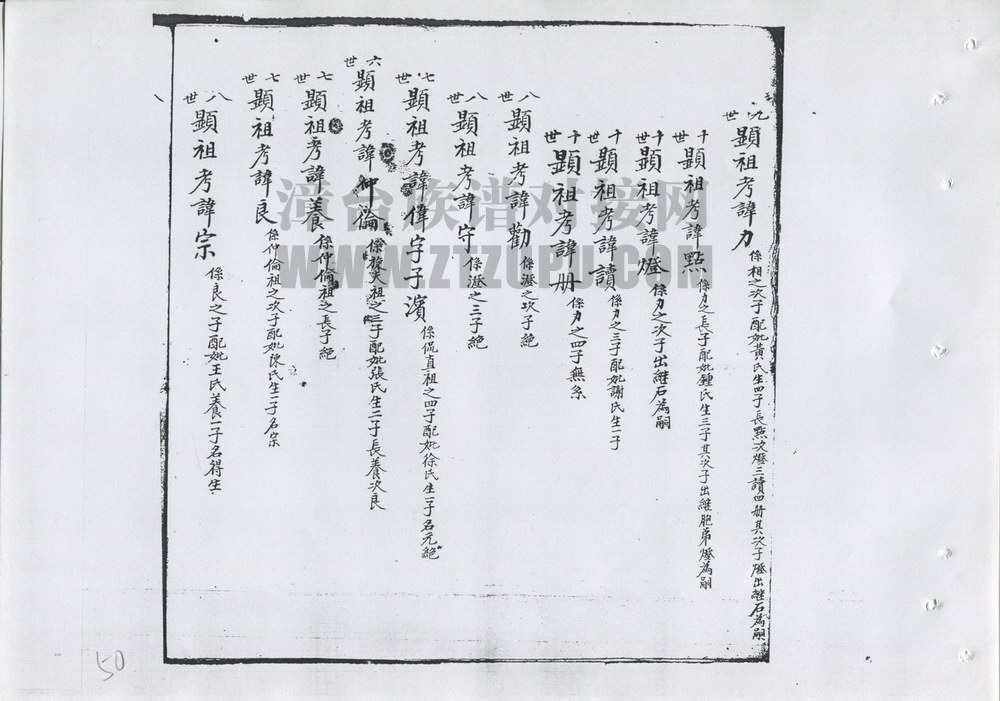 九世 顯祖考諱力 係相之次子配妣黃氏生四子長點次燈三讀四册其次子燈出継石為嗣
十世 顯祖考諱點 係力之長子配妣鍾氏生三子其次子出継胞弟燈為嗣
十世 顯祖考諱燈 係力之次子出継石為嗣
十世 顯祖考諱讀 係力之三子配妣謝氏生一子
十世 顯祖考諱册 係力之四子無糸
八世 顯祖考諱勸 係瀝之次子絶
八世 顯祖考諱守 係瀝之三子絶
七世 顯祖考諱偉字子濱 係侃直祖之四子配妣徐氏生一子名元絶
六世 顯祖考諱仲倫 係 夫祖之三子配妣張氏生二子長養次良
七世 顯祖考諱養 係仲倫祖之長子絶
七世 顯祖考諱良 係仲倫祖之次子配妣陳氏生一子名宗
八世 顯祖考諱宗 係良之子配妣王氏養一子名得生
漳台族谱对接网
WWW.ZTZUPU.COM
50